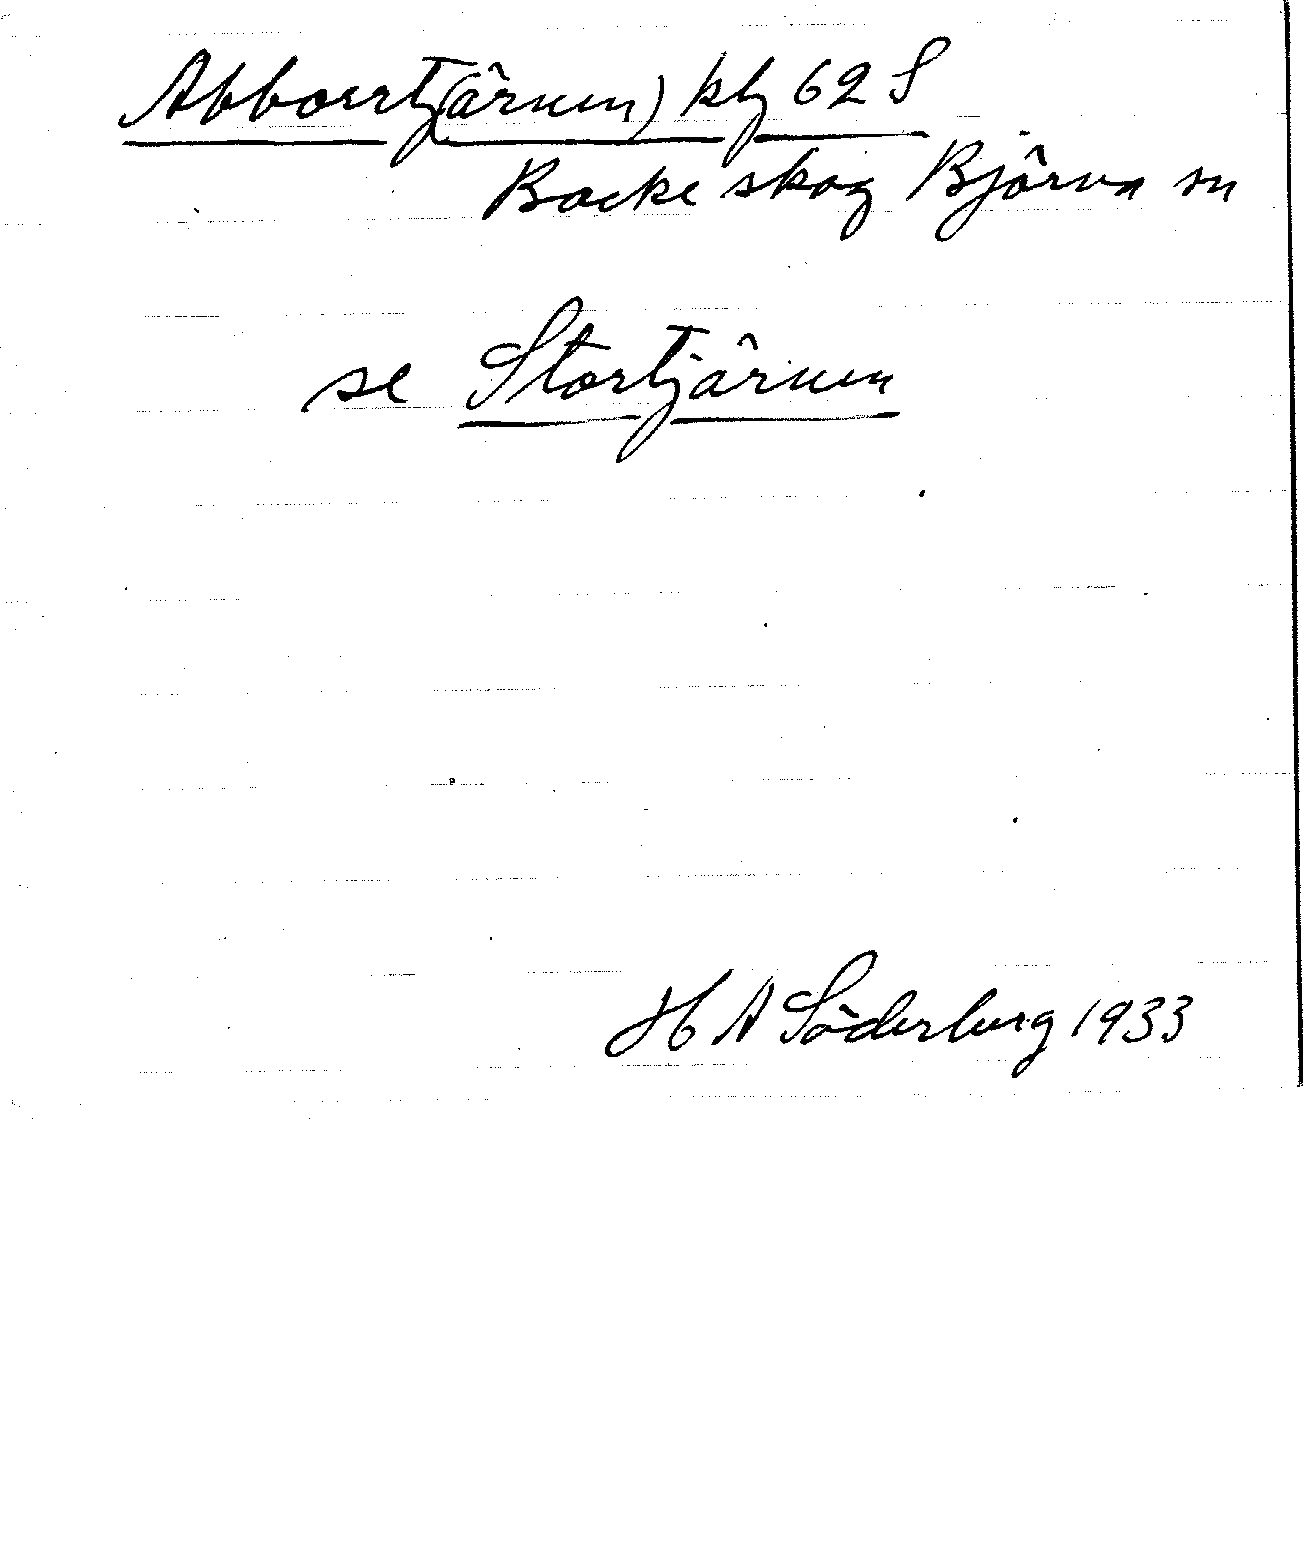 Abborrtj(ärnen) kbj 62 S
Backe skog Björna sn
se Stortjärnen
H A Söderberg 1933